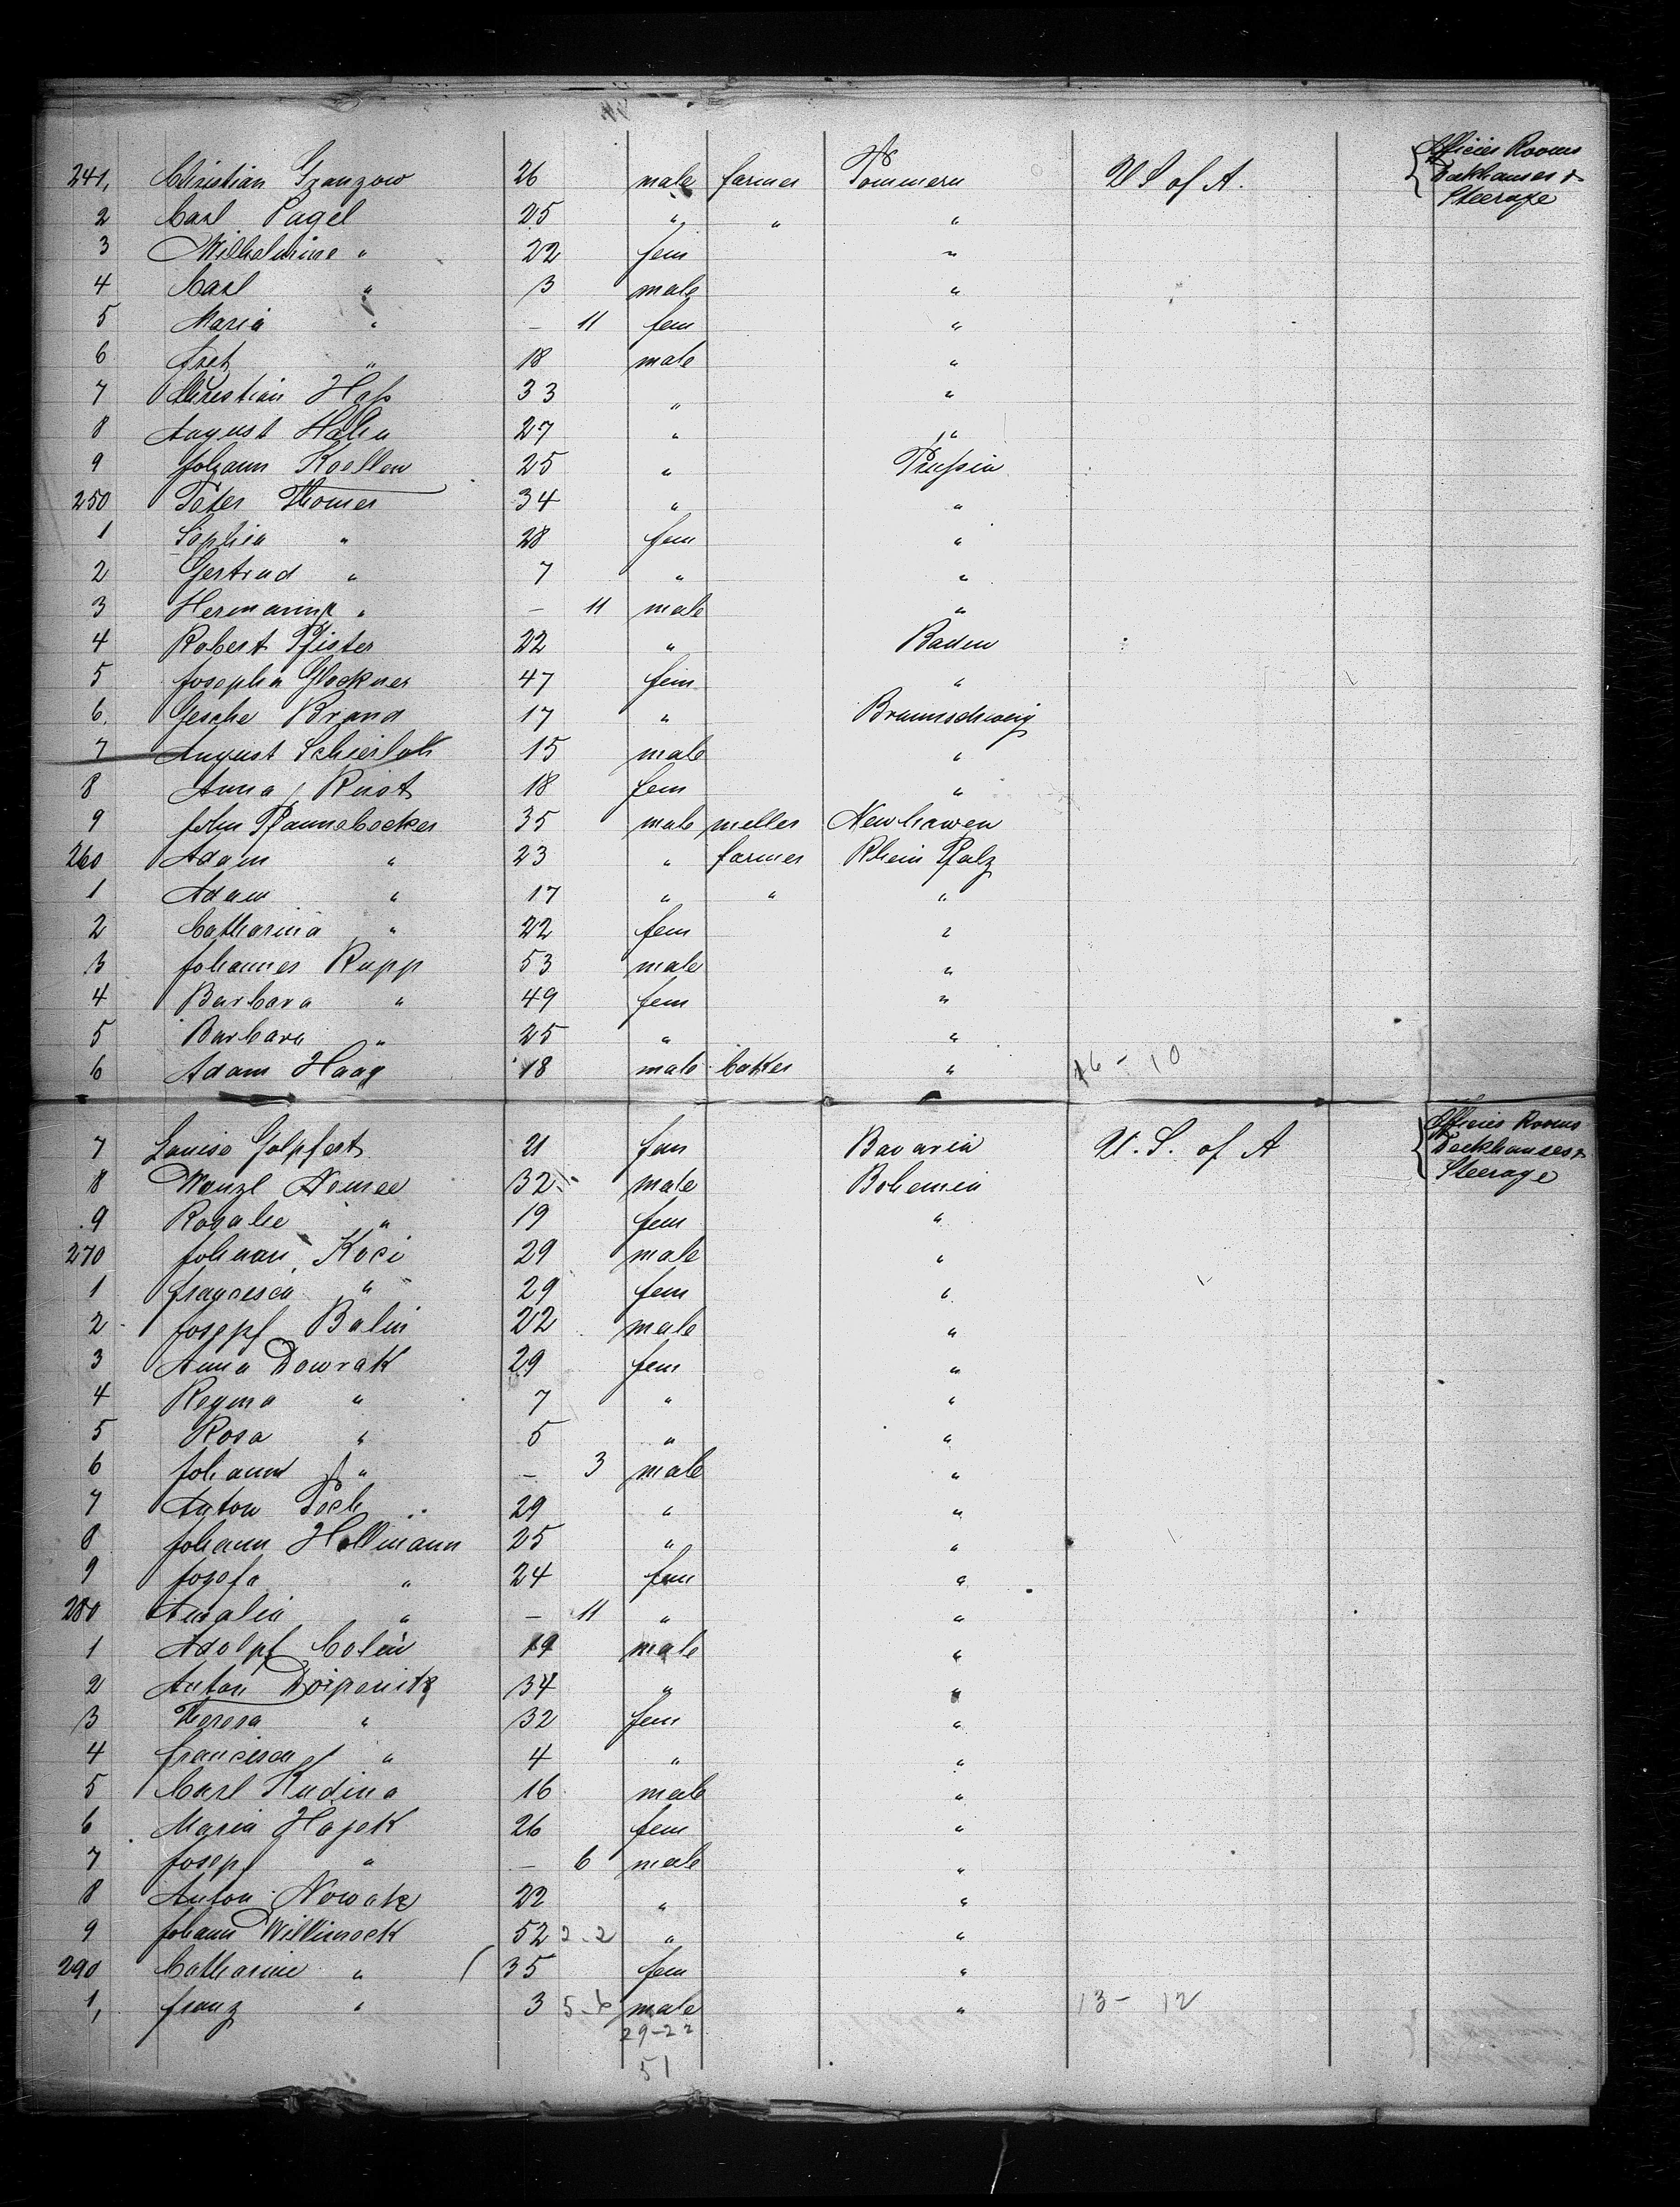 241, Christian Granzow 26 male farmer Pommern U S of A. { Officies Rooms
Deckhauses &
Steerage
2 Carl Pagel 25 " " "
3 Wilhelmine " 22 fem "
4 Carl " 3 male "
5 Maria " – 11 fem "
6 " 18 male "
7 Christian Haß 33 " "
8 August Hahn 27 " "
9 Johann Koellen 25 " Prußia
250 Peter Thomer 34 " "
1 Sophia " 28 fem "
2 Gertrud " 7 " "
3 " – 11 male "
4 Robert Pfister 22 " Baden
5 Josepha Glockner 47 fem "
6. Gesche Brand 17 " Braunschweig
7 August Schierloh 15 male "
8 Anna Rust 18 fem "
9 John Pfannebecker 35 male meller Newhawen
260 Adam " 23 " farmer Rhein Pfalz
1 Adam " 17 " " "
2 Catharina " 22 fem "
3 Johannes Rupp 53 male "
4 Barbara " 49 fem "
5 Barbara " 25 " "
6 Adam Haag 18 male baker " 16 - 10
7 Louise 21 fem Bavaria U. S. of A { Officies Rooms
Deckhauses &
Steerage
8 Wenzl Nemec 32 male Bohemia
9 Rosalie " 19 fem "
270 Johann Koci 29 male "
1 Francesca " 29 fem "
2 Josepf Balin 22 male "
3 Anna Dowrak 29 fem "
4 Regina " 7 " "
5 Rosa " 5 " "
6 Johann " – 3 male "
7 Anton Pech 29 " "
8 Johann Hollmann 25 " "
9 Josefa " 24 fem "
280 Amalia " – 11 " "
1 Adolpf 19 male "
2 Anton 34 " "
3 Theresa " 32 fem "
4 Francisca " 4 " "
5 Carl Kudina 16 male "
6 Maria Hajek 26 fem "
7 Josepf " – 6 male "
8 Anton Nowak 22 " "
9 Johann Willimeck 52 2-2 " "
290 Catharine " 35 fem "
1, Franz " 3 5-6 male " 13 - 12
29-22
51